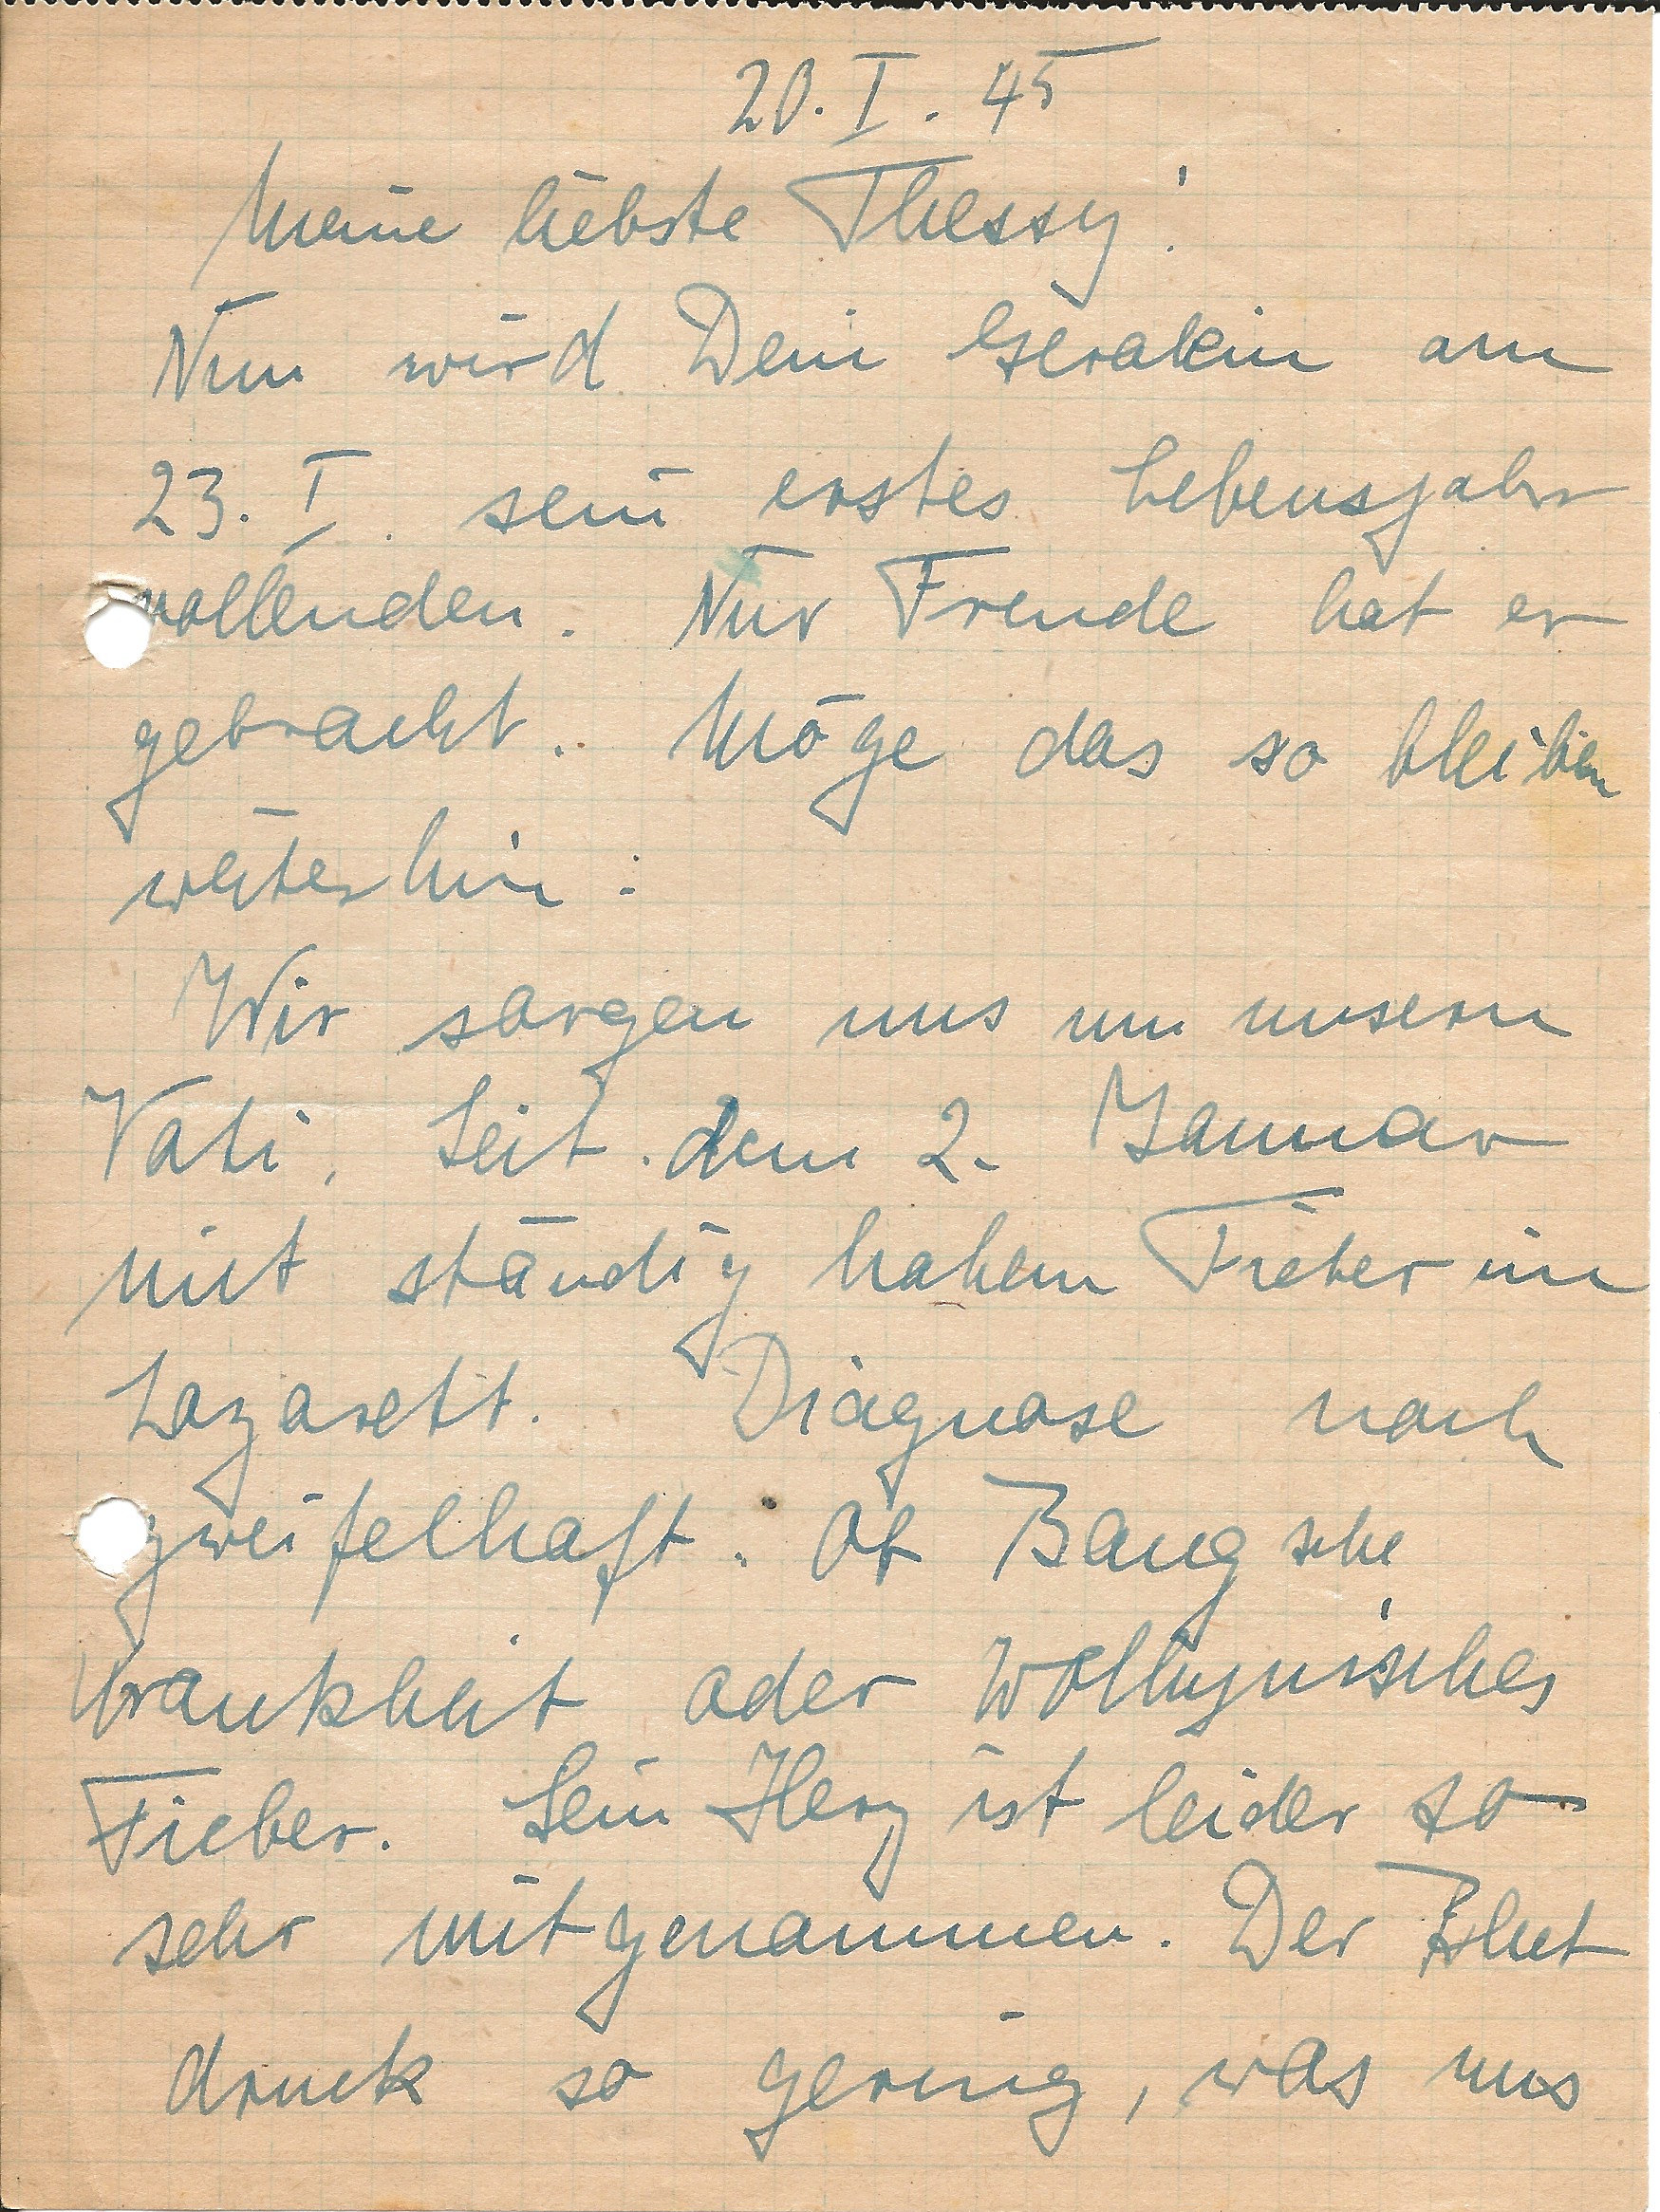 20. I. 45
Meine liebste Thessy!
Nun wird Dein Geralein am
23. I. sein erstes Lebensjahr
vollenden. Nur Freude hat er
gebracht. Möge das so bleiben
weiterhin!
Wir sorgen uns um unsern
Vati. Seit dem 2. Januar
mit ständig hohem Fieber im
Lazarett. Diagnose noch
zweifelhaft. Ob Bangsche
Krankheit oder Wolhynisches
Fieber. Sein Herz ist leider so
sehr mitgenommen. Der Blut
druck so gering, was uns